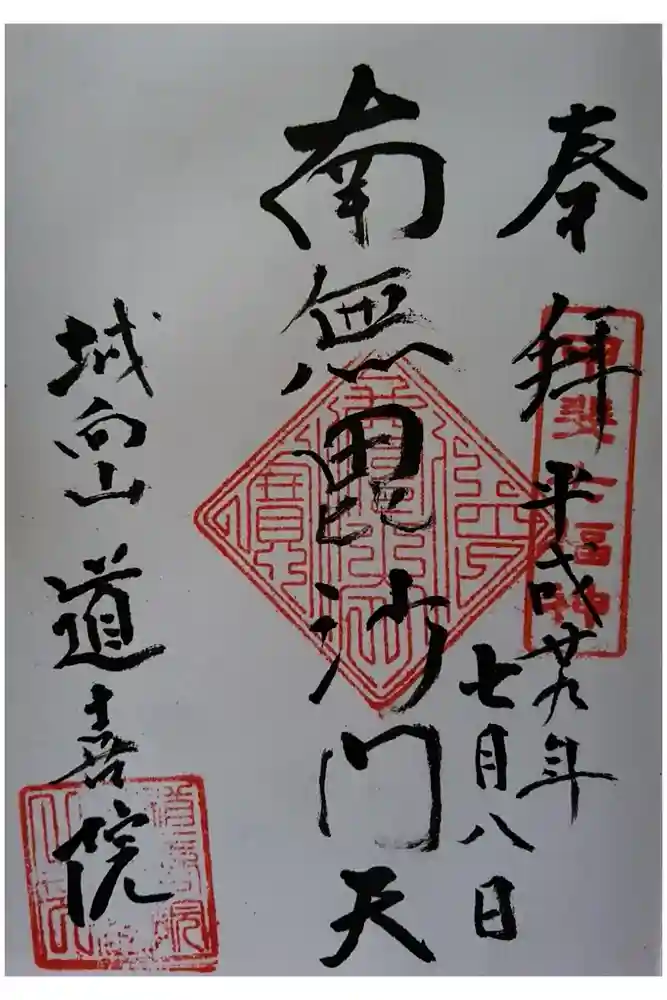 奉拝
甲斐七福神
平成廿九年
七月八日
南無毘沙門天
城向山
道喜院